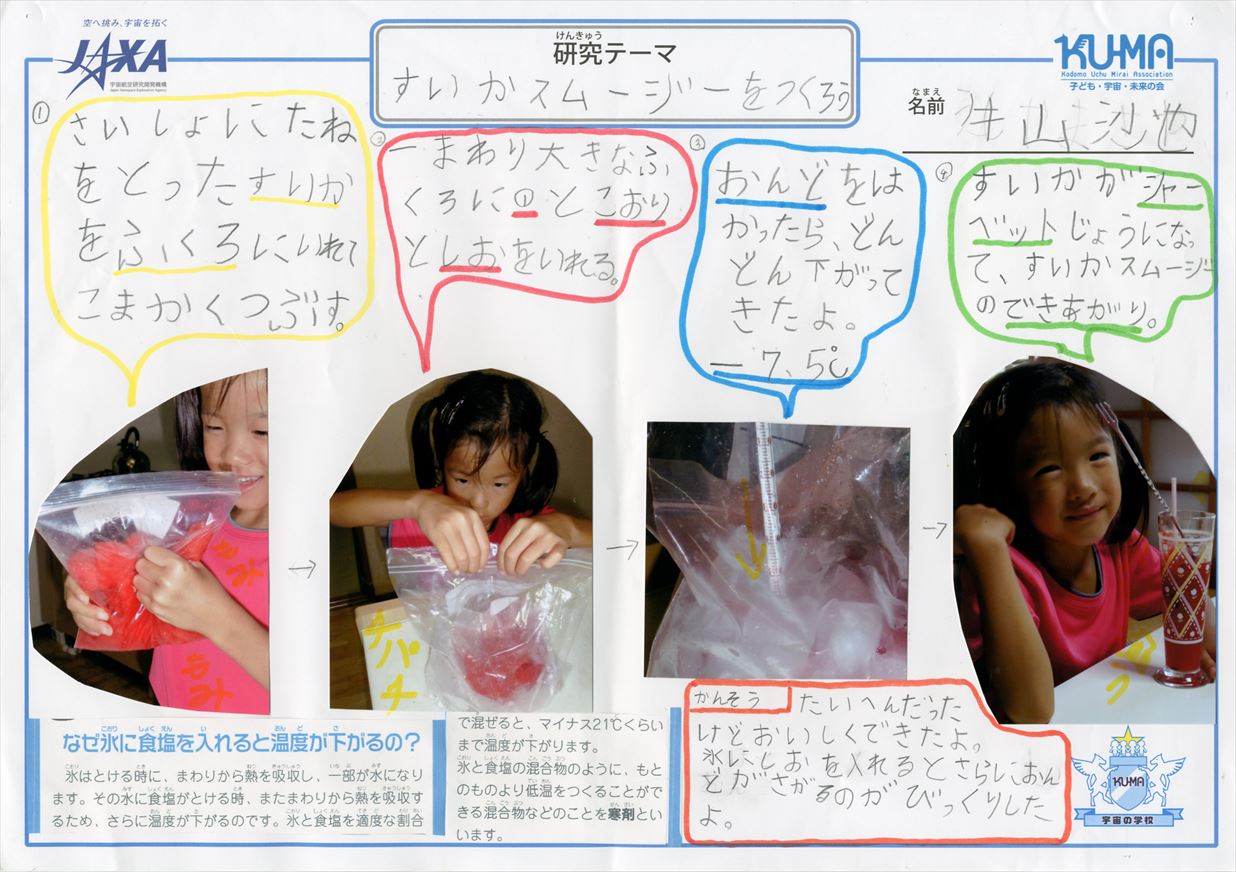 空へ挑み、宇宙を拓く
JAXA
宇宙航空研究開発機構
Japan Aerospace Exploration Agency
けんきゅう
研究テーマ
すいかスムージーをつくろう
KU-MA
Kodomo Uchu Mirai Association
子ども・宇宙・未来の会
なまえ
名前
①
さいしょにたね
をとったすいか
をふくろにいれて
こまかくつぶす。
②
一まわり大きなふ
くろに①とこおり
としおをいれる。
③
おんどをは
かったら、どん
どん下がって
きたよ。
－7、5℃
④
すいかがシャー
ベットじょうになっ
て、すいかスムージー
のできあがり。
もみ
もみ
→
パチ
パチ
→
→
なぜ氷に食塩を入れると温度が下がるの?
氷はとける時に、まわりから熱を吸収し、一部が水になり
ます。その水に食塩がとける時、またまわりから熱を吸収す
るため、さらに温度が下がるのです。氷と食塩を適度な割合
で混ぜると、マイナス21℃くらい
まで温度が下がります。
氷と食塩の混合物のように、もと
のものより低温をつくることがで
きる混合物などのことを寒剤とい
います。
かんそう
たいへんだった
けどおいしくできたよ。
氷にしおを入れるとさらにおん
どがさがるのがびっくりした
よ。
KU-MA
宇宙の学校